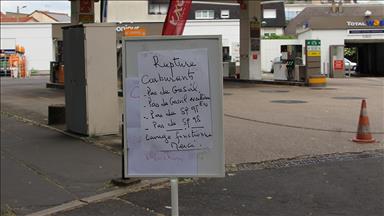 TOTAL
Rupture
Carburants
- Pas de Gasoil
- Pas de Gasoil
- Pas de SP 95
- Pas de SP 98
Lavage fonctionne
Merci.